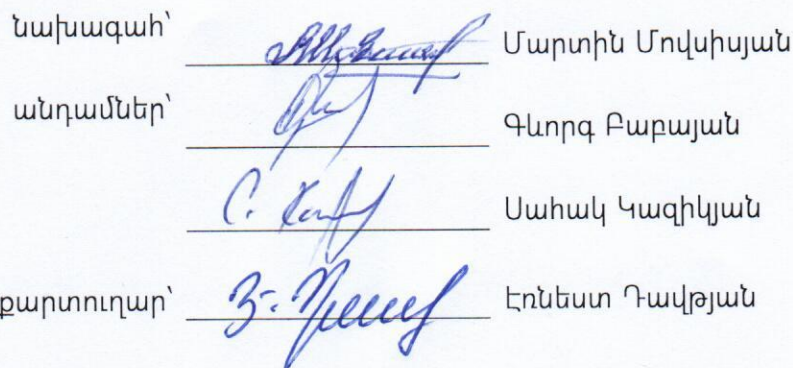 նախագահ՝ Մարտին Մովսիսյան
անդամներ՝ Գևորգ Բաբայան
Սահակ Կազիկյան
քարտուղար՝ Էռնեստ Դավթյան